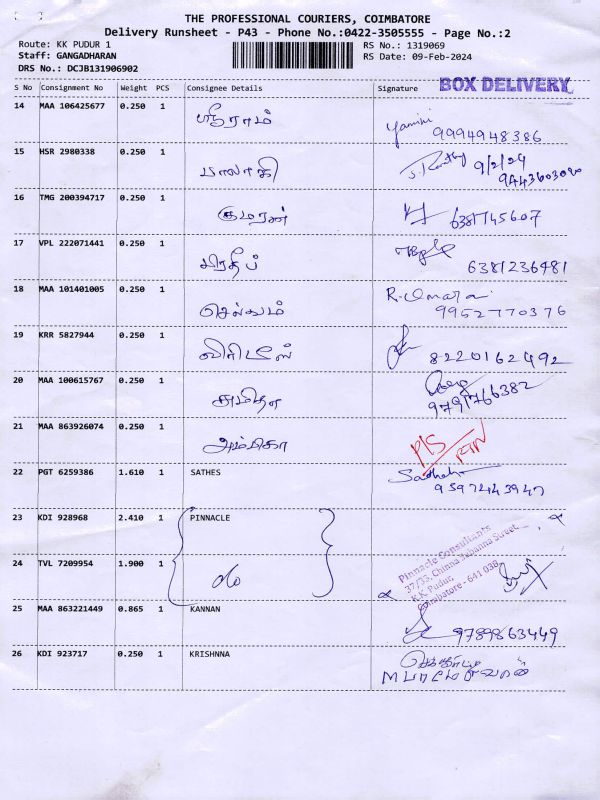 THE PROFESSIONAL COURIERS, COIMBATORE
Delivery Runsheet - P43 - Phone No.:0422-3505555 - Page No.:2
Route: KK PUDUR 1 RS No.: 1319069
Staff: GANGADHARAN RS Date: 09-Feb-2024
DRS No.: DCJB131906902
BOX DELIVERY
S No Consignment No Weight PCS Consignee Details Signature
14 MAA 106425677 0.250 1 ஸ்ரீராம் Yamini
9994948386
15 HSR 2980338 0.250 1 பாலாஜி 9/2/24
16 TMG 200394717 0.250 1 குமரன் 6381745607
17 VPL 222071441 0.250 1 பிரதீப்
6381236481
18 MAA 101401005 0.250 1 செல்வம் R.Umara
9952770376
19 KRR 5827944 0.250 1 8220162492
20 MAA 100615767 0.250 1
9791766382
21 MAA 863926074 0.250 1 அம்பிகா P/S
RTN
22 PGT 6259386 1.610 1 SATHES
23 KDI 928968 2.410 1 PINNACLE
24 TVL 7209954 1.900 1 do
Pinnacle Consultants
37/33, Chinna Subanna Street
K.K Pudur,
Coimbatore - 641 038
25 MAA 863221449 0.865 1 KANNAN 9789863449
26 KDI 923717 0.250 1 KRISHNNA